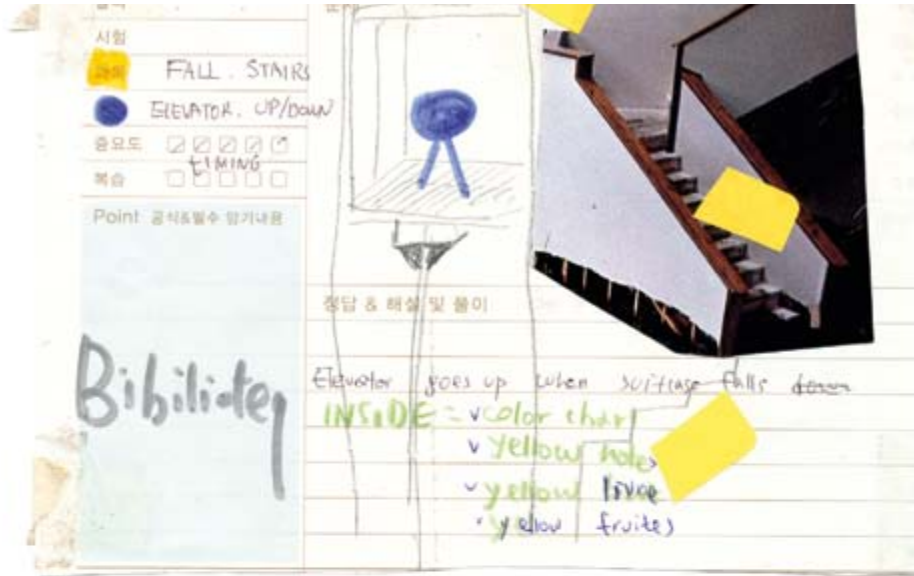 시험
FALL. STAIRS
ELEVATOR. UP/DOWN
중요도
TIMING
복습
Point 공식&필수 암기내용
Bibilitey
정답 & 해설 및 풀이
Elevator goes up when suitcase falls down
INSIDE = v color chart
v yellow holes
v yellow
yellow fruites